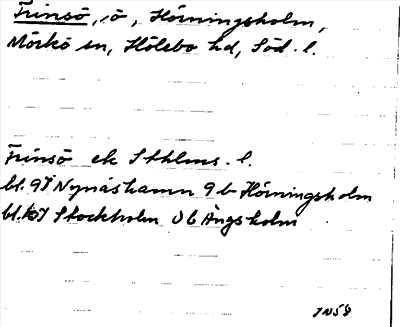 Frinsö, ö, Hörningsholm,
Mörkö sn, Hölebo hd, Söd. l.
Frinsö ek Sthlms. l.
bl. 97 Nynäshamn 9 b Hörningsholm
bl. 107 Stockholm 0 b Ängsholm
JN58